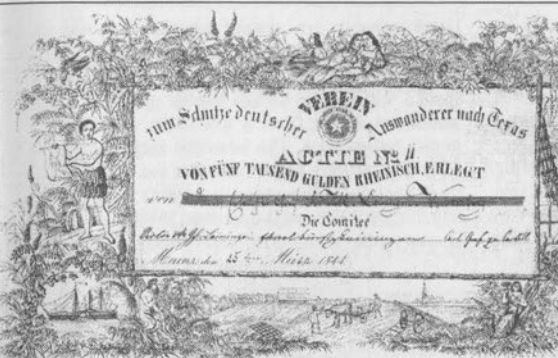 VEREIN
zum Schutze deutscher Auswanderer nach Texas
ACTIE No 11
VON FÜNF TAUSEND GULDEN RHEINISCH, ERLEGT
von
Die Comiteé
Leiningen Carl Graf zu Castell
Mainz den 25ten März 1844